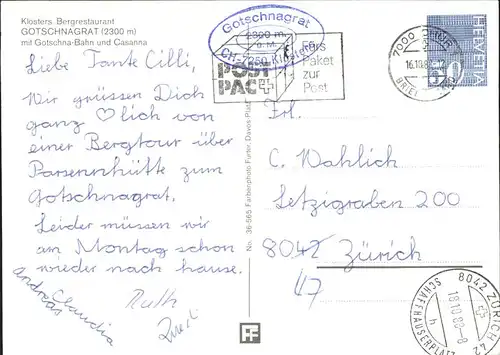 Klosters Bergrestaurant
GOTSCHNAGRAT (2300 m)
mit Gotschna-Bahn und Casanna
Liebe Tante Cilli,
Wir grüssen Dich
ganz ♡lich von
einer Bergtour über
Parsennhütte zum
Gotschnagrat.
Leider müssen wir
am Montag schon
wieder nach hause.
Andreas Claudia
Ruth
No. 36-565 Farbenphoto Furter, Davos-Platz
Gotschnagrat
2300 m
ü. M.
CH-7250 Klosters
POST
PAC
fürs
Paket
zur
Post
7000
16.10.80
HELVETIA
Frl.
C. Wahlich
Letzigraben 200
8042 Zürich
47
8042 ZÜRICH 42
18.10.80-8
h
SCHAFFHAUSERPLATZ